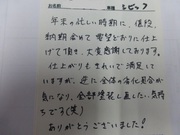 お名前 車種 シビック
年末の忙しい時期に、価段、
納期含めて希望どおりに仕上
げて頂き、大変感謝しております。
仕上がりもきれいで満足して
いますが、逆に全体の劣化具合が
気になり、全部塗装し直したい気持
ちです(笑)
ありがとうございました!